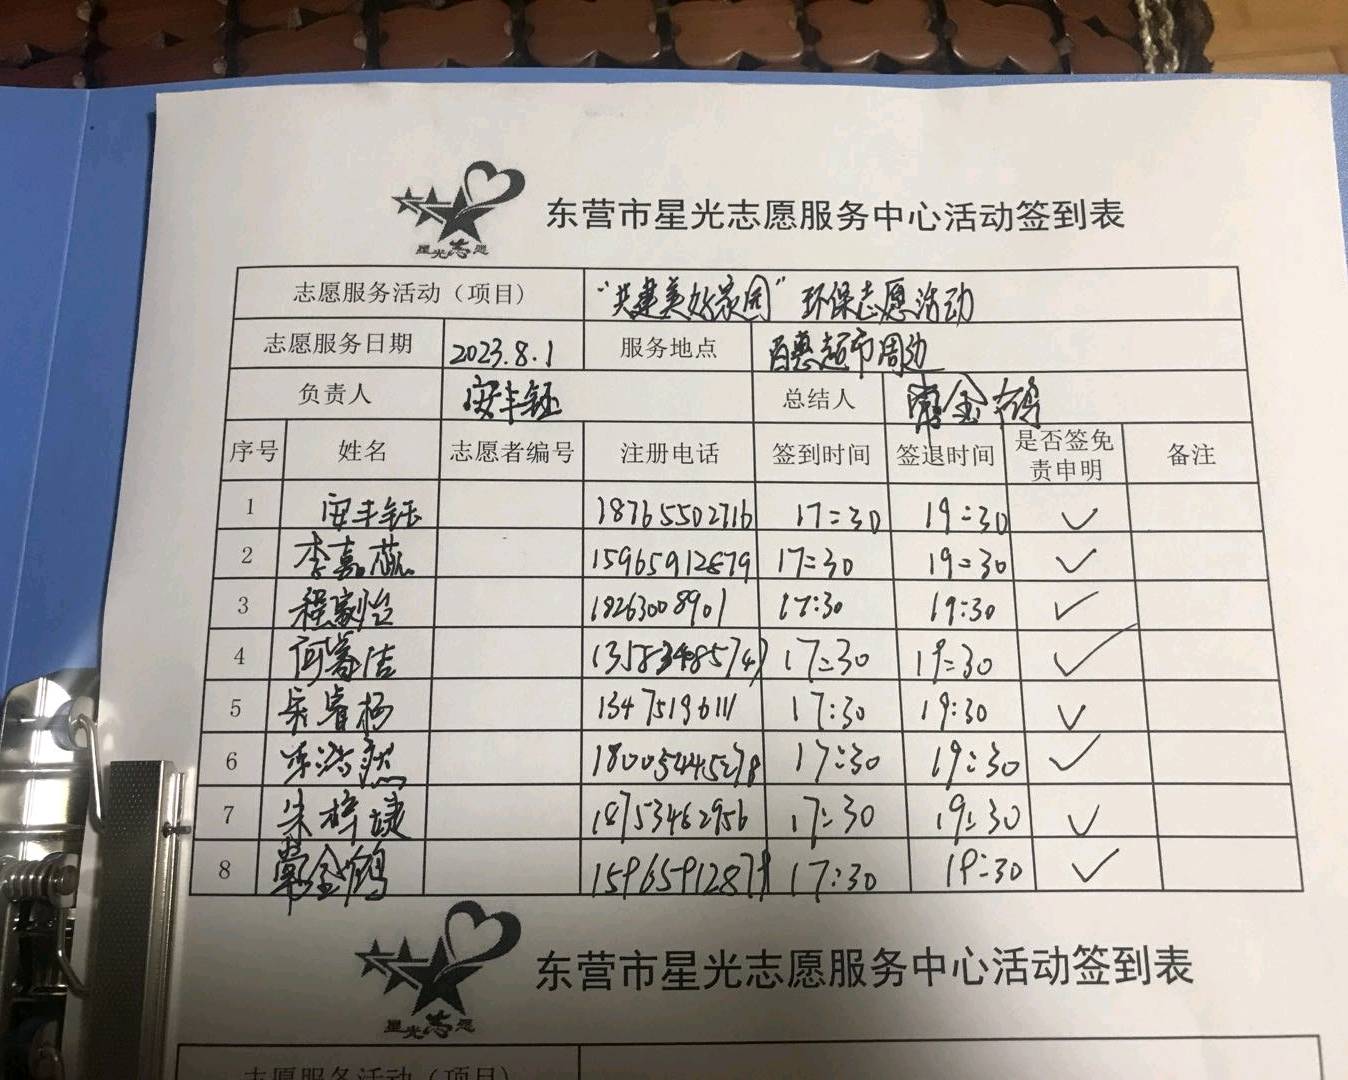 星光志愿
东营市星光志愿服务中心活动签到表
志愿服务活动（项目） “共建美好家园”环保志愿活动
志愿服务日期 2023.8.1 服务地点 百惠超市周边
负责人 安丰钰 总结人 金鸽
序号 姓名 志愿者编号 注册电话 签到时间 签退时间 是否签免责申明 备注
1 安丰钰 18765502716 17:30 19:30 ✓
2 李嘉蕊 15965912879 17:30 19:30 ✓
3 程家怡 18263008901 17:30 19:30 ✓
4 17:30 19:30 ✓
5 13475196111 17:30 19:30 ✓
6 17:30 19:30 ✓
7 朱梓婕 18753462956 17:30 19:30 ✓
8 金鸽 15965912879 17:30 19:30 ✓
星光志愿
东营市星光志愿服务中心活动签到表
志愿服务活动（项目）